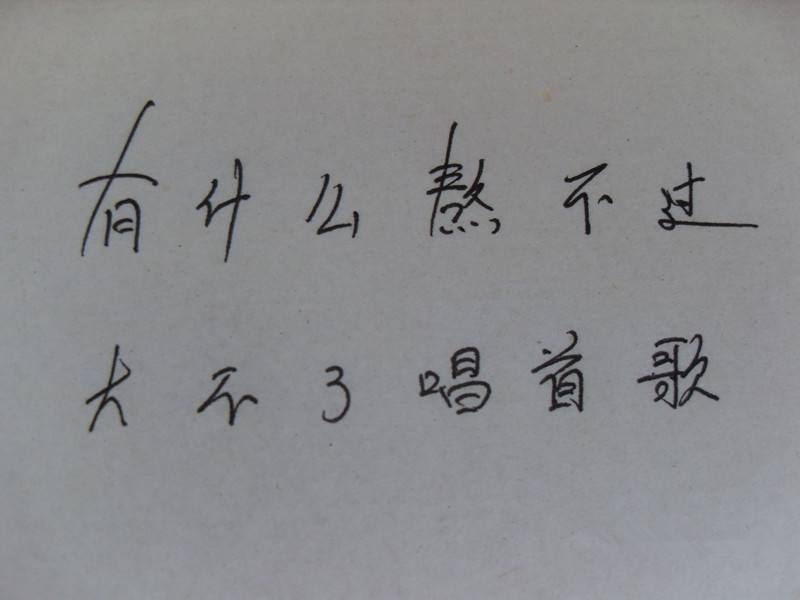 有什么熬不过
大不了唱首歌